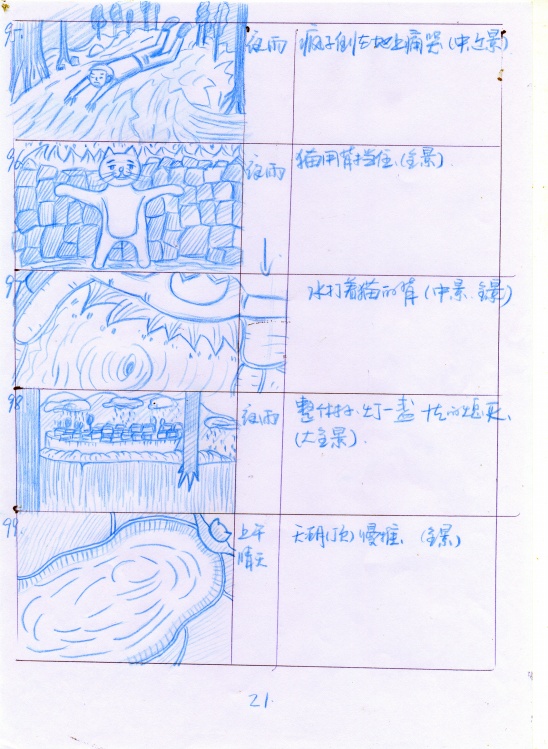 95. 夜雨 疯子倒在地上痛哭(中近景)
96 夜雨 猫用背挡住.(全景).
97 水打着猫的背(中景.全景)
98 夜雨 整个村子.灯一盏
(大全景).
99. 上午 天明(顶)慢推. (全景)
晴天
21.